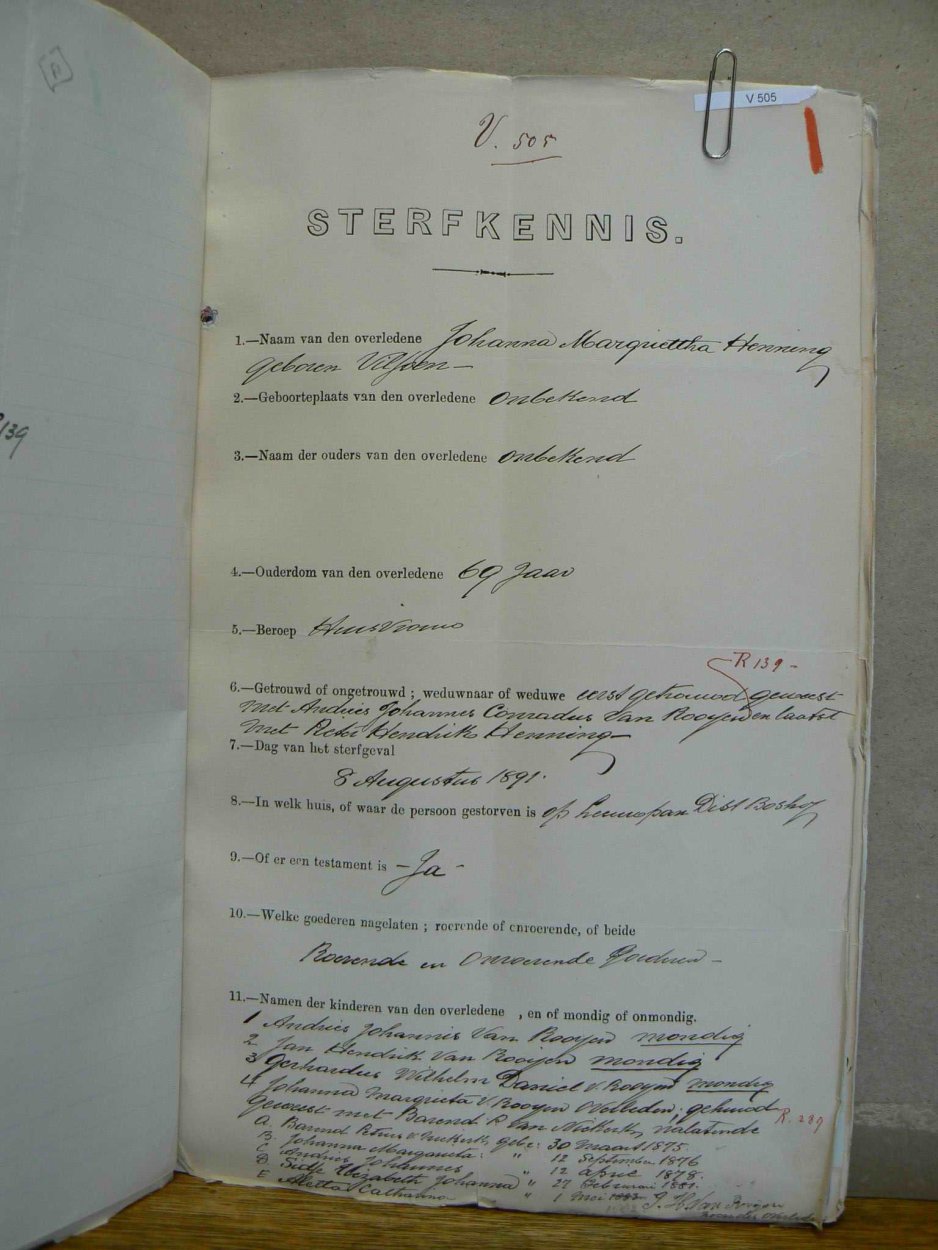 V 505
V. 505
STERFKENNIS.
1.—Naam van den overledene Johanna Margrettha Henning
geboren Viljoen —
2.—Geboorteplaats van den overledene onbekend
139
3.—Naam der ouders van den overledene onbekend
4.—Ouderdom van den overledene 69 Jaar
5.—Beroep Huisvrouw
R 139 -
6.—Getrouwd of ongetrouwd ; weduwnaar of weduwe eerst getrouwd geweest
met Andries Johannes Conradus Van Rooyen en laatst
met Petrus Hendrik Henning
7.—Dag van het sterfgeval
8 Augustus 1891.
8.—In welk huis, of waar de persoon gestorven is op Dist Boshof
9.—Of er een testament is — Ja -
10.—Welke goederen nagelaten ; roerende of onroerende, of beide
Roerende en Onroerende Goederen —
11.—Namen der kinderen van den overledene , en of mondig of onmondig.
1 Andries Johannis Van Rooyen mondig
2 Jan Hendrik Van Rooijen mondig
3 Gerhardus Wilhelm Daniel v Rooyen mondig
4 Johanna Margrieta v Rooyen Overleden, gehuwd
geweest met Barend P Van Niekerk, nalatende
R. 289
A. Barend Petrus v Niekerk gebo: 30 Maart 1875.
B. Johanna Margaretta: " 12 September 1876
C Andries Johannes " 12 April 1878.
D " 27 Februari 1881.
E Aletta Catharina " 1 Mei